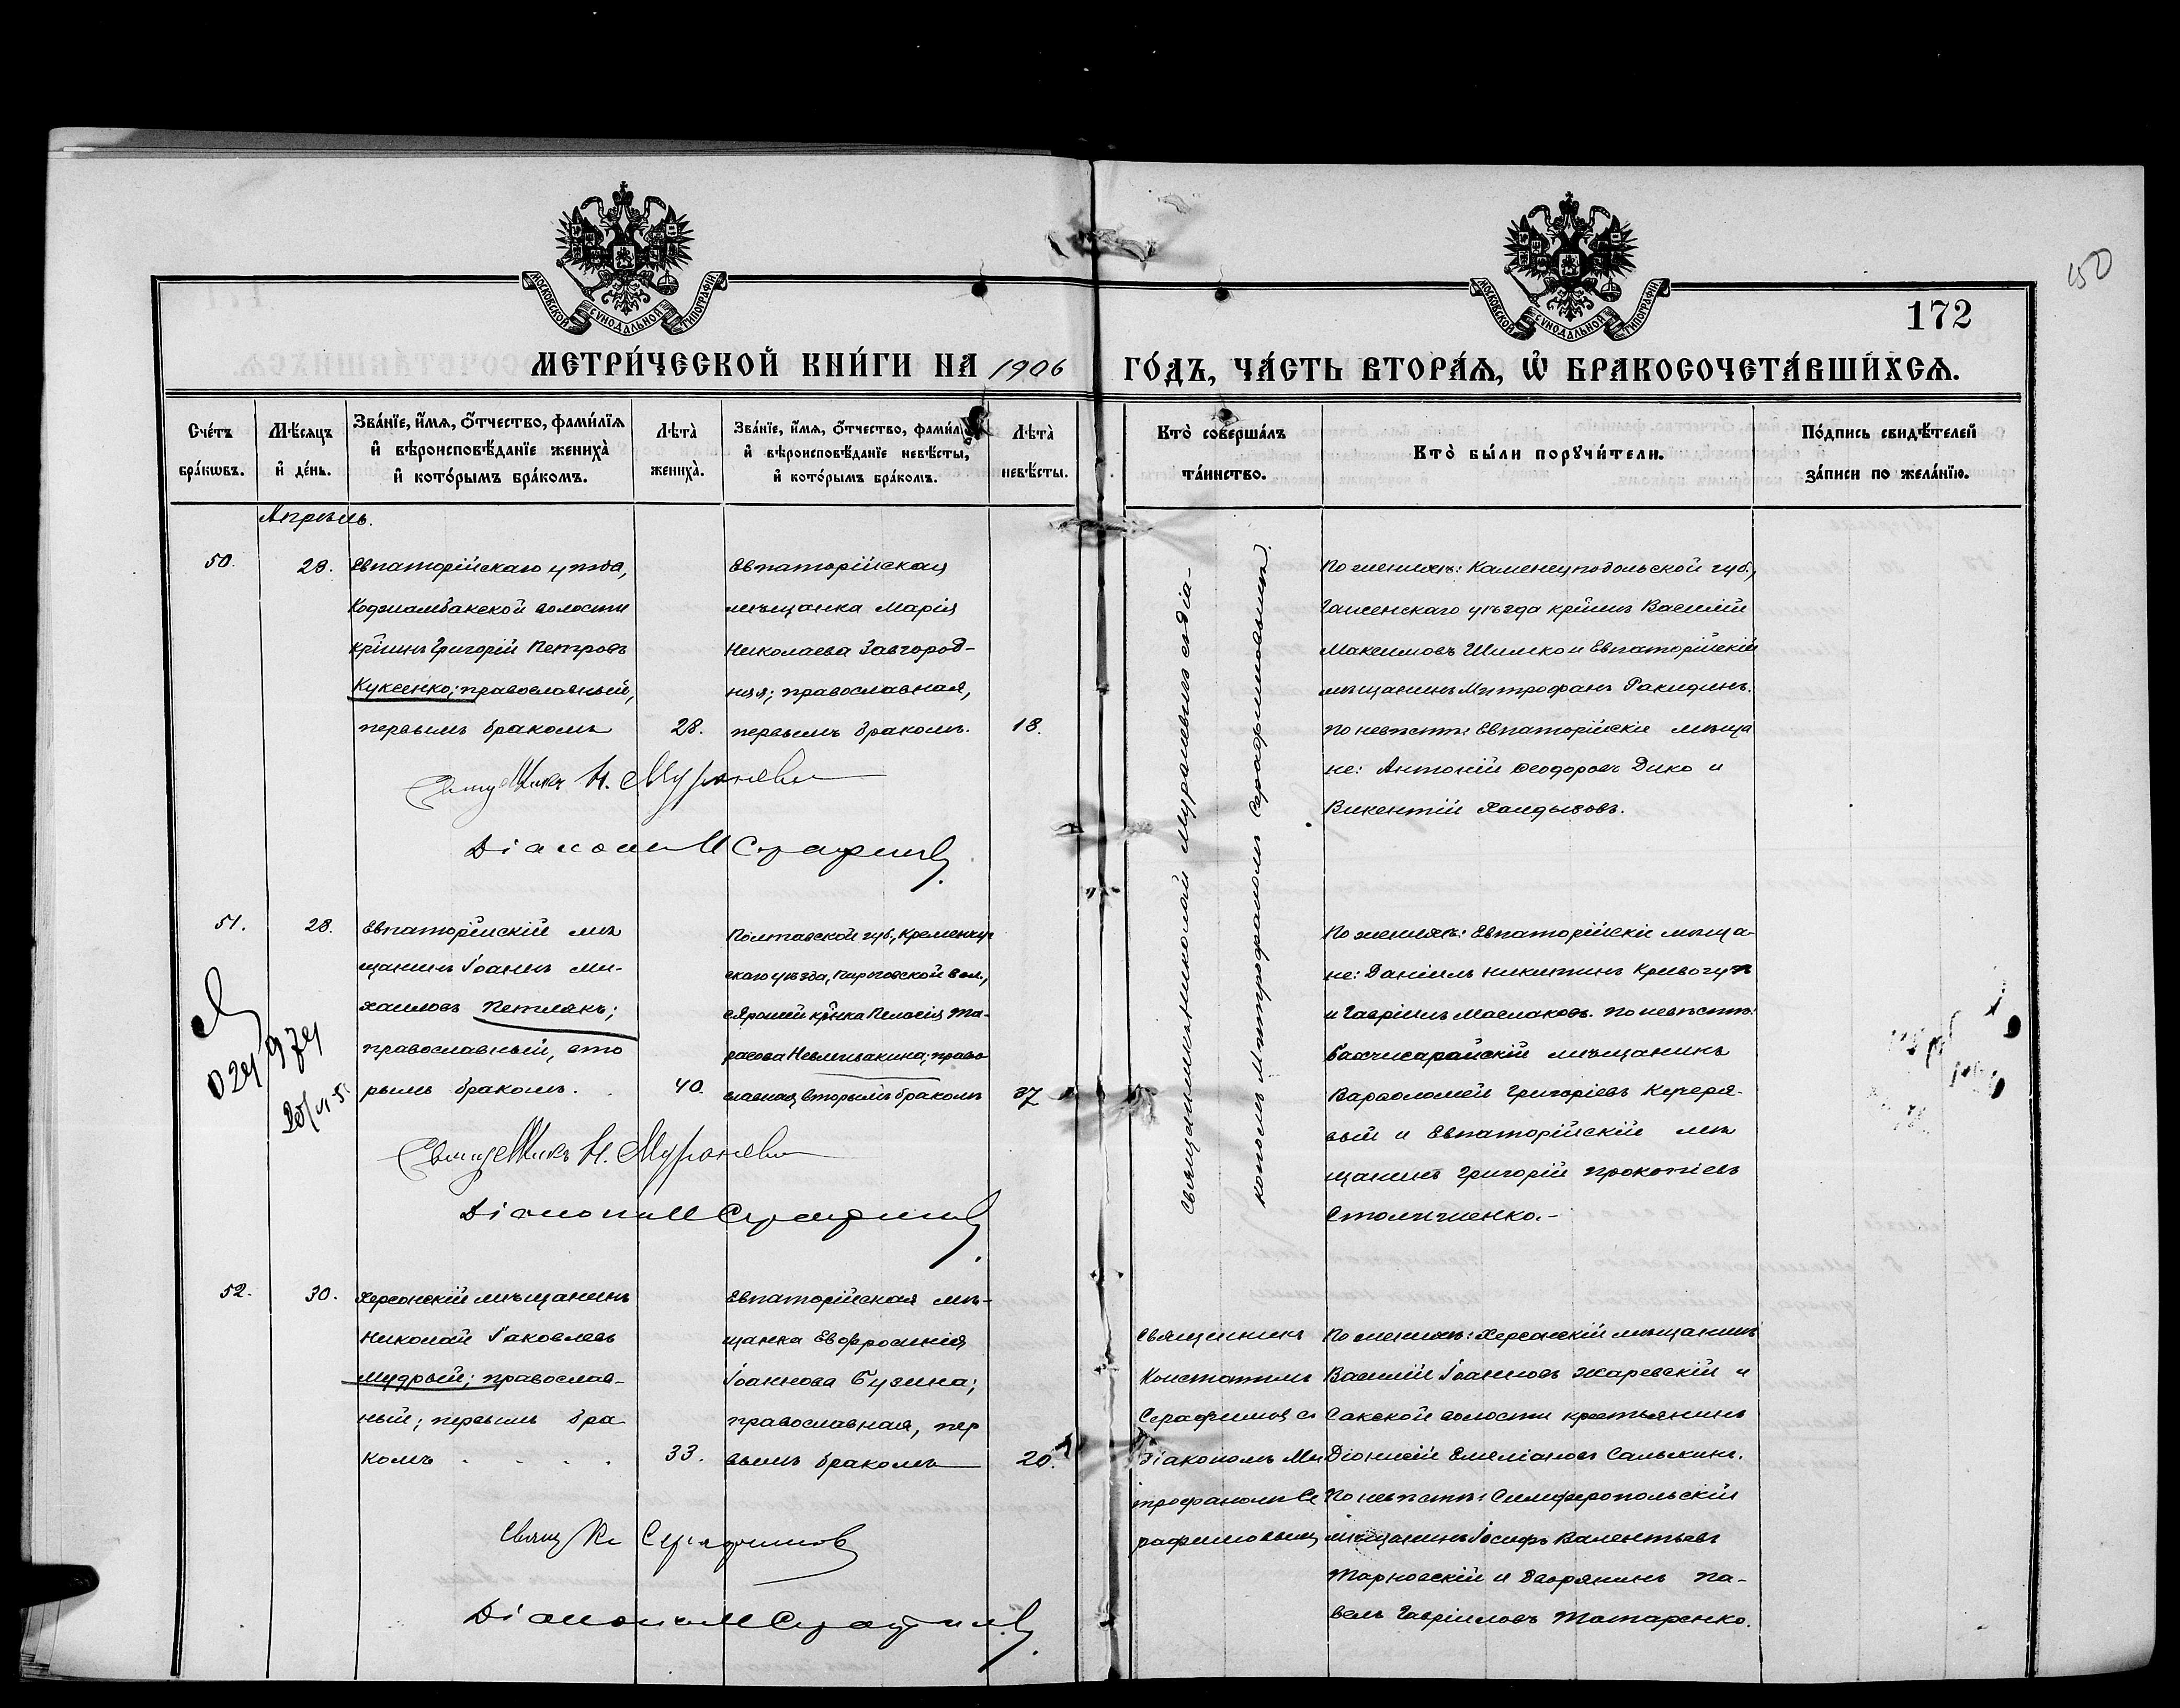 МОСКОВСКОЙ СѴНОДАЛЬНОЙ ТИПОГРАФІИ
МОСКОВСКОЙ СѴНОДАЛЬНОЙ ТИПОГРАФІИ
172
МЕТРИ́ЧЕСКОЙ КНИ́ГИ НА 1906 ГО́ДЪ, ЧА́СТЬ ВТОРА́Ѧ, Ѡ҆ БРАКОСОЧЕТА́ВШИХСѦ.
Сче́тъ
бра́кѡвъ.
Мѣ́сяцъ
и҆ де́нь.
Зва́нїе, и҆́мѧ, ѻ҆́тчество, фами́лїѧ
и҆ вѣроисповѣ́данїе жениха̀
и҆ кото́рымъ бра́комъ.
Лѣ́та̀
жениха̀.
Зва́нїе, и҆́мѧ, ѻ҆́тчество, фами́л
и҆ вѣроисповѣ́данїе невѣ́сты,
и҆ кото́рымъ бра́комъ.
Лѣ́та̀
невѣ́сты.
Кто̀ соверша́лъ
та́инство.
Кто̀ бы́ли порꙋчи́тели.
По́дпись свидѣ́телей
за́писи по жела́нїю.
Апрѣль.
50.
28.
Евпаторійскаго уѣзда,
Коджамбакской волости
кр̃инъ Григорій Петровъ
Куксенко; православный,
первымъ бракомъ
28.
Евпаторійская
мѣщанка Марія
Николаева Завгород-
няя; православная,
первымъ бракомъ.
18.
Священникомъ Николой Муралевымъ съ діа-
кономъ Митрофаномъ Серафимовымъ.
По женихѣ: Каменецподольской губ.,
Гайсенскаго уѣзда кр̃инъ Василій
Максимовъ Шимко и Евпаторійскій
мѣщанинъ Митрофанъ Ракидинъ.
По невѣстѣ: Евпаторійскіе мѣща
не: Антоній Ѳеодоровъ Дико и
Викентій
Діаконъ М Серафимовъ
51.
28.
Евпаторійскій мѣ
щанинъ Іоаннъ Ми-
хаиловъ Петлякъ;
православный, вто
рымъ бракомъ.
40.
Полтавской губ., Кременчуг
скаго уѣзда, Пироговской вол.,
кр̃нка Пелагія Та-
расова Невливакина; право
славная, вторымъ бракомъ
37
По женихѣ: Евпаторійскіе мѣща-
не: Даніилъ Никитинъ Кривогуз
и Гавріилъ Маслаковъ. По невѣстѣ:
Бахчисарайскій мѣщанинъ
Варѳоломей Григоріевъ Кучеря-
вый и Евпаторійскій мѣ
щанинъ Григорій Прокопіевъ
Діаконъ М Серафимовъ
52.
30.
Херсонскій мѣщанинъ
Николай Іаковлевъ
Мудрый; православ-
ный; первымъ бра
комъ
33.
Евпаторійская мѣ-
щанка Евфросинія
Іоаннова Бузина;
православная, пер
вымъ бракомъ
20.
Священникъ
Константинъ
Серафимовъ съ
діакономъ Ми
трофаномъ Се
рафимовымъ
По женихѣ: Херсонскій мѣщанинъ
Василій Іоанновъ Жаревскій и
Сакской волости крестьянинъ
Діонисій Емеліановъ Салыкинъ.
По невѣстѣ: Симферопольскій
мѣщанинъ Іосифъ Валентьевъ
Тарновскій и дворянинъ Па-
велъ Гавріиловъ Татаренко.
Свящ К Серафимовъ
Діаконъ М Серафимовъ